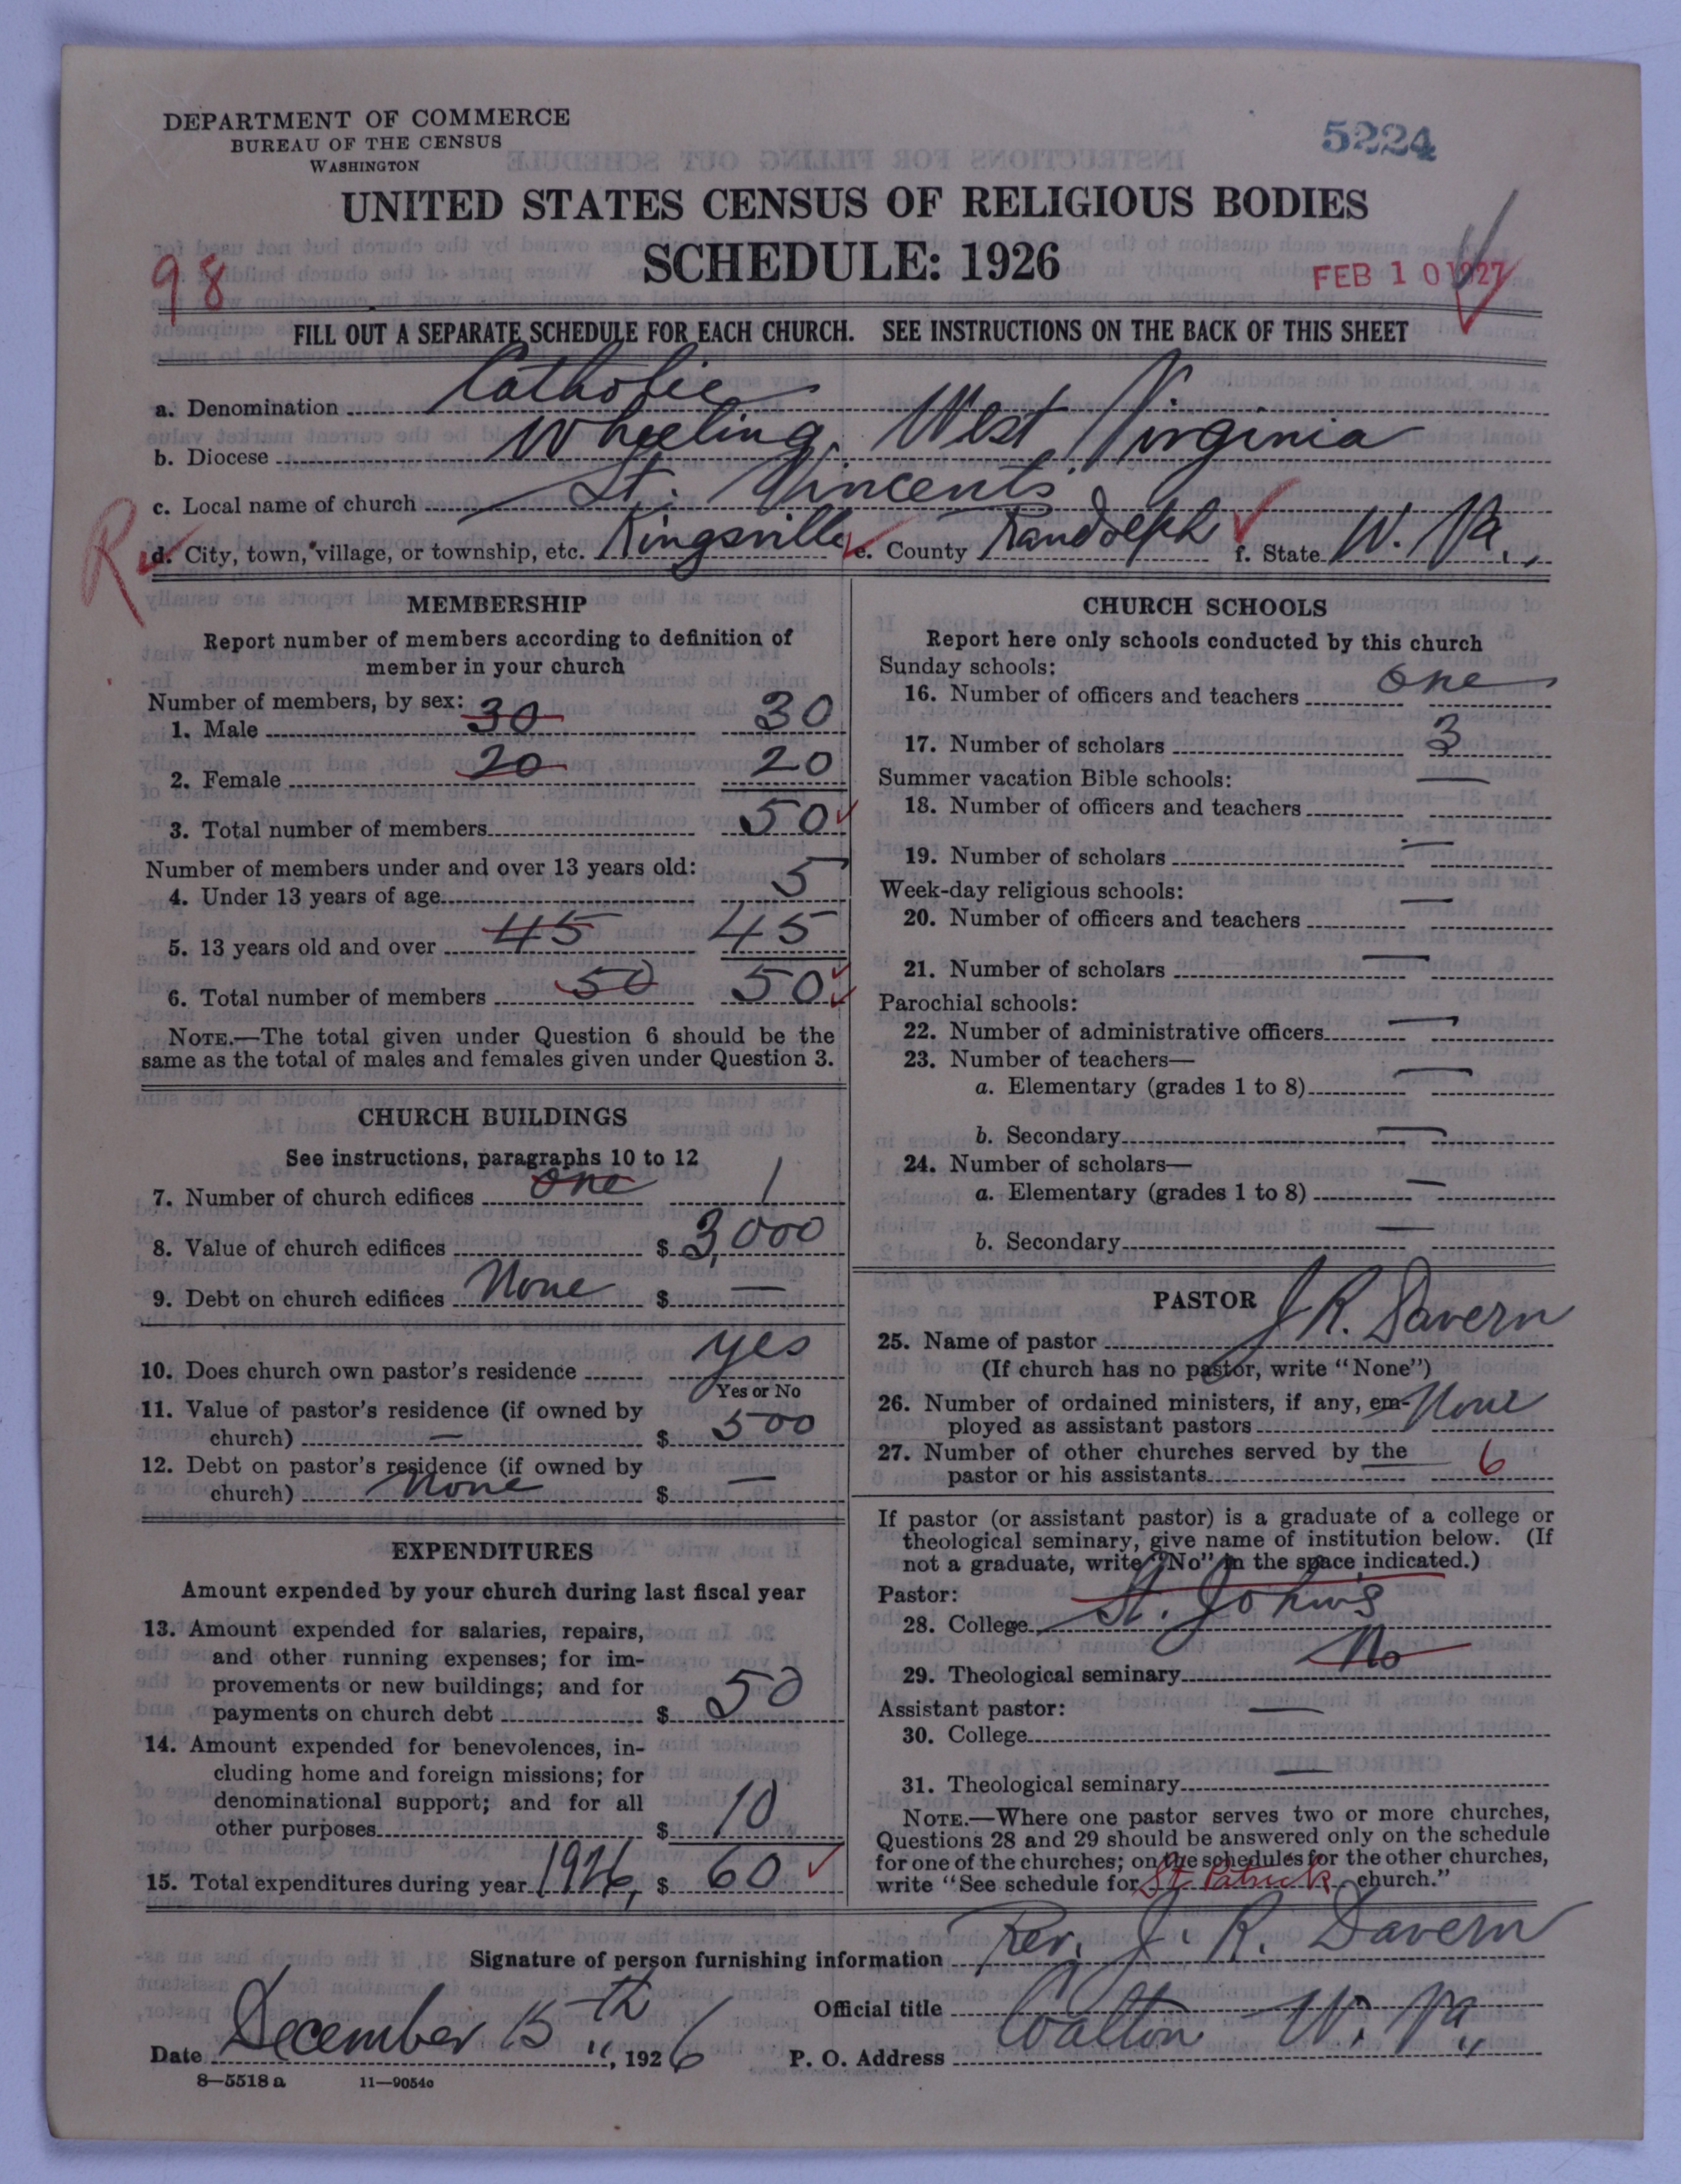 DEPARTMENT OF COMMERCE
BUREAU OF THE CENSUS
WASHINGTON
5224
UNITED STATES CENSUS OF RELIGIOUS BODIES
SCHEDULE: 1926
98
FEB 10 1927
FILL OUT A SEPARATE SCHEDULE FOR EACH CHURCH. SEE INSTRUCTIONS ON THE BACK OF THIS SHEET
a. Denomination Catholic
b. Diocese Wheeling, West Virginia
c. Local name of church St. Vincents
R
d. City, town, village, or township, etc. Kingsville e. County Randolph f. State W. Va.
MEMBERSHIP
Report number of members according to definition of
member in your church
Number of members, by sex:
1. Male 30 30
2. Female 20 20
3. Total number of members 50
Number of members under and over 13 years old:
4. Under 13 years of age 5
5. 13 years old and over 45 45
6. Total number of members 50 50
NOTE.—The total given under Question 6 should be the
same as the total of males and females given under Question 3.
CHURCH BUILDINGS
See instructions, paragraphs 10 to 12
7. Number of church edifices one 1
8. Value of church edifices $ 3,000
9. Debt on church edifices None $ —
10. Does church own pastor's residence yes
Yes or No
11. Value of pastor's residence (if owned by
church) — $ 500
12. Debt on pastor's residence (if owned by
church) None $ —
EXPENDITURES
Amount expended by your church during last fiscal year
13. Amount expended for salaries, repairs,
and other running expenses; for im-
provements or new buildings; and for
payments on church debt $ 50
14. Amount expended for benevolences, in-
cluding home and foreign missions; for
denominational support; and for all
other purposes $ 10
15. Total expenditures during year 1926, $ 60
CHURCH SCHOOLS
Report here only schools conducted by this church
Sunday schools:
16. Number of officers and teachers one
17. Number of scholars 3
Summer vacation Bible schools:
18. Number of officers and teachers —
19. Number of scholars —
Week-day religious schools:
20. Number of officers and teachers —
21. Number of scholars —
Parochial schools:
22. Number of administrative officers —
23. Number of teachers—
a. Elementary (grades 1 to 8) —
b. Secondary —
24. Number of scholars—
a. Elementary (grades 1 to 8) —
b. Secondary —
PASTOR
25. Name of pastor J. R. Davern
(If church has no pastor, write "None")
26. Number of ordained ministers, if any, em-
ployed as assistant pastors None
27. Number of other churches served by the
pastor or his assistants 6
If pastor (or assistant pastor) is a graduate of a college or
theological seminary, give name of institution below. (If
not a graduate, write "No" in the space indicated.)
Pastor:
28. College St. John's
29. Theological seminary No
Assistant pastor:
30. College —
31. Theological seminary —
NOTE.—Where one pastor serves two or more churches,
Questions 28 and 29 should be answered only on the schedule
for one of the churches; on the schedules for the other churches,
write "See schedule for St. Patrick church."
Signature of person furnishing information Rev. J. R. Davern
Official title
Date December 15th, 1926 P. O. Address Coalton W. Va.
8—5518 a 11—9054c